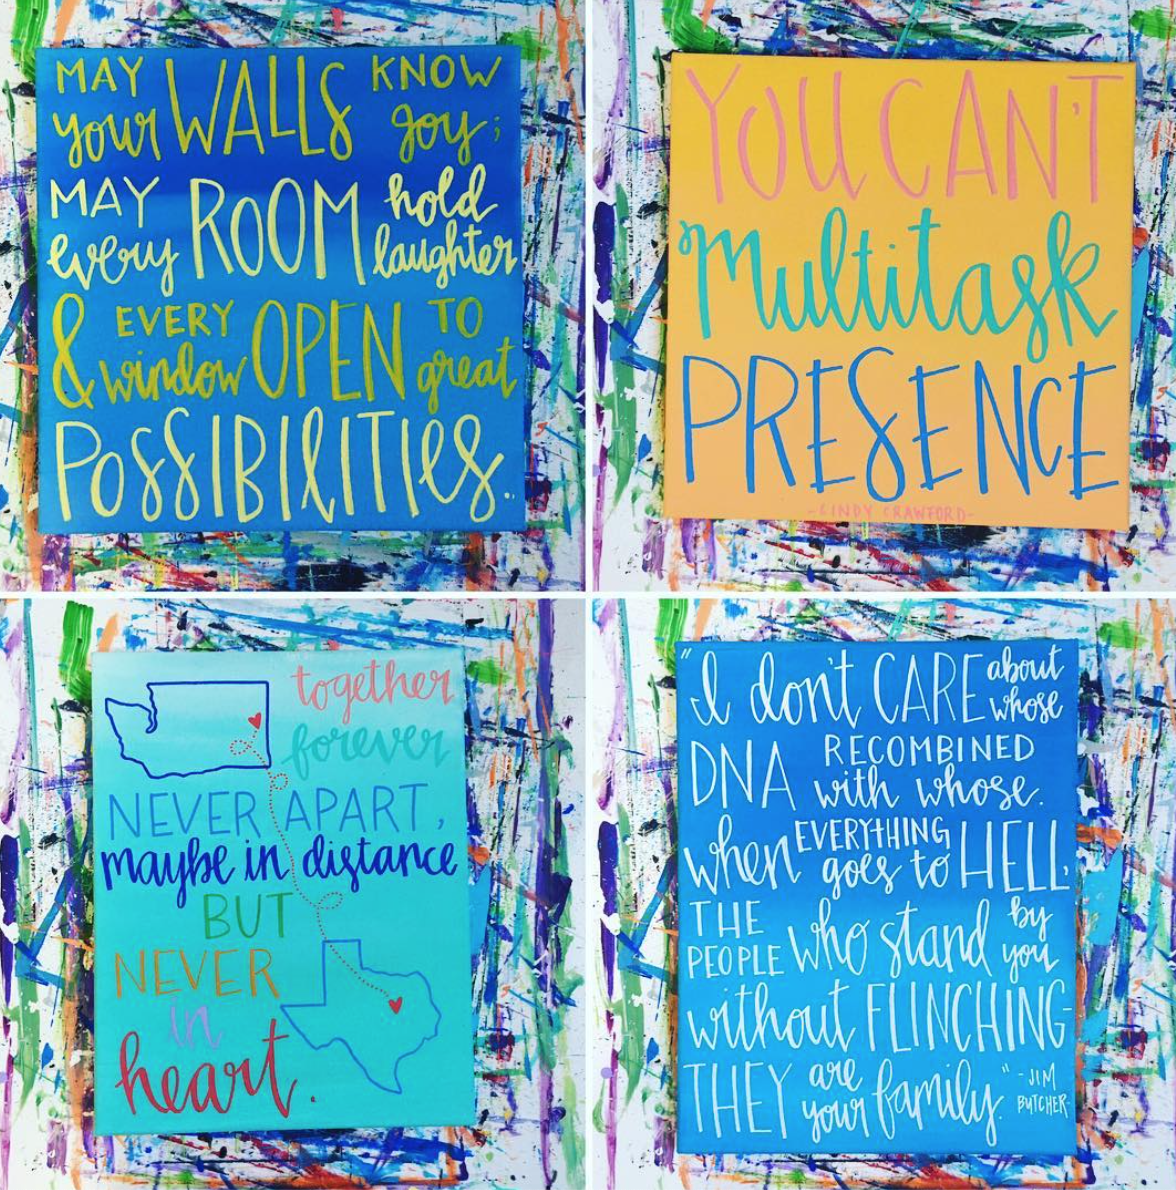 MAY your WALLS KNOW joy;
MAY every ROOM hold laughter
& EVERY window OPEN TO great
POSSIBILITIES.
YOU CAN'T
Multitask
PRESENCE
-CINDY CRAWFORD-
together
forever
NEVER APART,
maybe in distance
BUT
NEVER
in
heart.
"I don't CARE about whose
DNA RECOMBINED with whose.
when EVERYTHING goes to HELL,
THE PEOPLE who stand by you
without FLINCHING-
THEY are your family." -JIM BUTCHER-